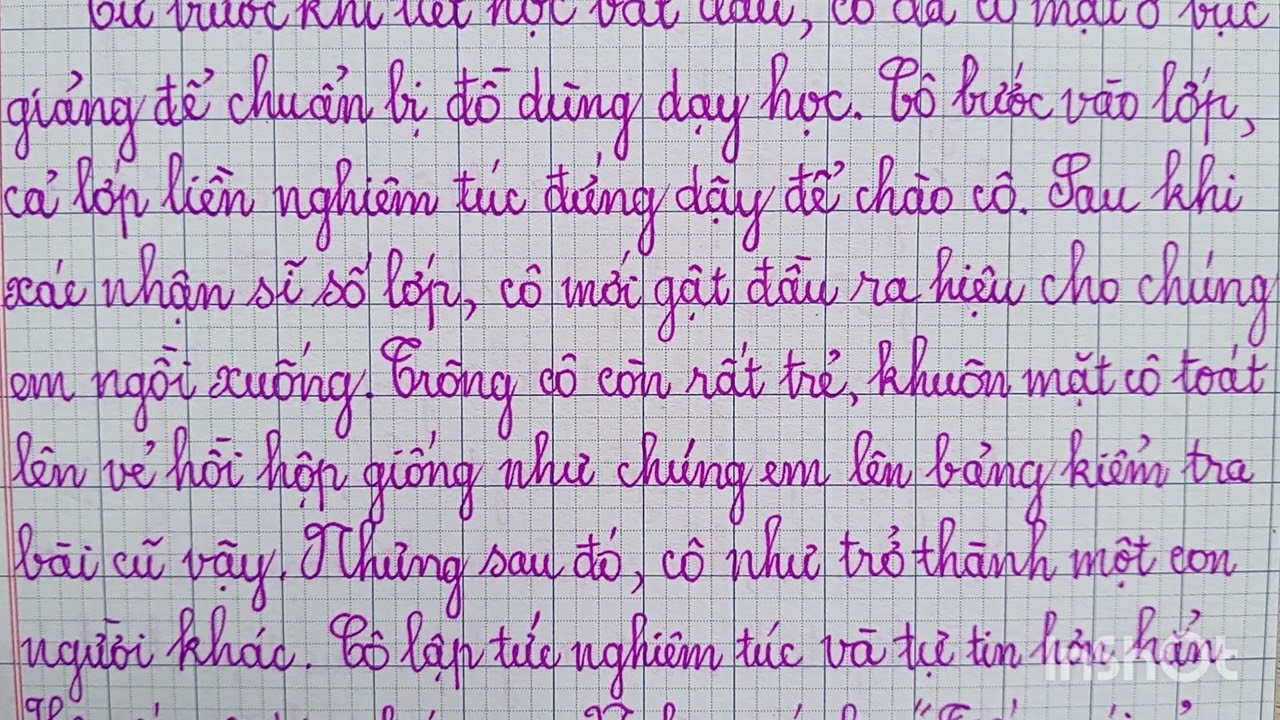 trước khi tiết học bắt đầu, cô đã có mặt ở bục
giảng để chuẩn bị đồ dùng dạy học. Cô bước vào lớp,
cả lớp liền nghiêm túc đứng dậy để chào cô. Sau khi
xác nhận sĩ số lớp, cô mới gật đầu ra hiệu cho chúng
em ngồi xuống. Trông cô còn rất trẻ, khuôn mặt cô toát
lên vẻ hồi hộp giống như chúng em lên bảng kiểm tra
bài cũ vậy. Nhưng sau đó, cô như trở thành một con
người khác. Cô lập tức nghiêm túc và tự tin hơn hẳn.
InShot